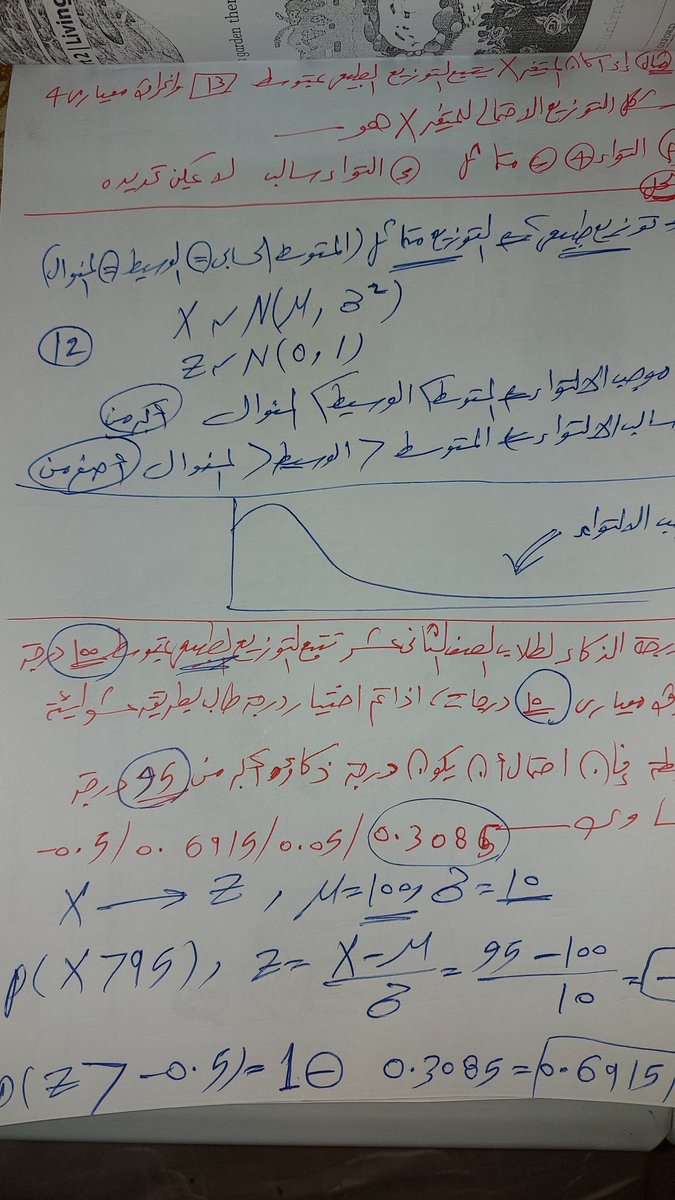 Living
garden ther
مثال إذا كان المتغير X يتبع التوزيع الطبيعي بمتوسط 13 وانحراف معياري 4
شكل التوزيع الاحتمالي للمتغير X هو
التواء + متماثل التواء سالب لا يمكن تحديده
الحل
توزيع طبيعي ⇐ التوزيع متماثل (المتوسط الحسابي = الوسيط = المنوال)
X ~ N(μ, σ²)
12
Z ~ N(0, 1)
موجب الالتواء ⇐ المتوسط > الوسيط > المنوال أكبر من
سالب الالتواء ⇐ المتوسط < الوسيط < المنوال أصغر من
ب الالتواء
درجة الذكاء لطلاب الصف الثاني عشر تتبع التوزيع الطبيعي بمتوسط 100 درجة
معياري 10 درجات، اذا تم اختيار درجة طالب بطريقة عشوائية
فإن احتمال أن يكون درجة ذكاؤه أكبر من 95 درجة
-0.5 / 0.6915 / 0.05 / 0.3085
X → Z , μ=100, σ=10
P(X>95), Z = X-μ/σ = 95-100/10 =
(Z > -0.5) = 1 - 0.3085 = 0.6915